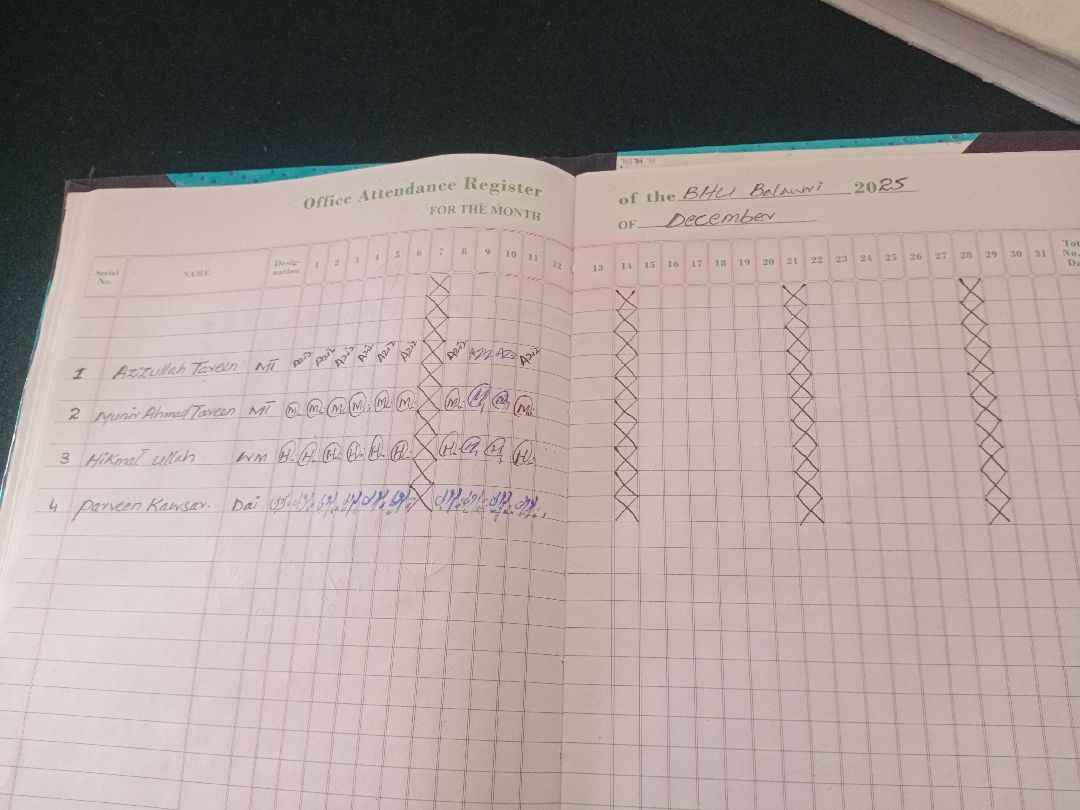 Office Attendance Register of the BHU Balawri 2025
FOR THE MONTH OF December
Serial No. NAME Desig-nation 1 2 3 4 5 6 7 8 9 10 11 12 13 14 15 16 17 18 19 20 21 22 23 24 25 26 27 28 29 30 31 Tot No. Da
1 Azizullah Tareen MT Aziz Aziz Aziz Aziz Aziz Aziz Aziz Aziz Aziz Aziz
2 Munir Ahmad Tareen MT M. M. M. M. M. M. M. M. M. M.
3 Hikmat ullah WM H. H. H. H. H. H. H. H. H. H.
4 Parveen Kawsar. Dai